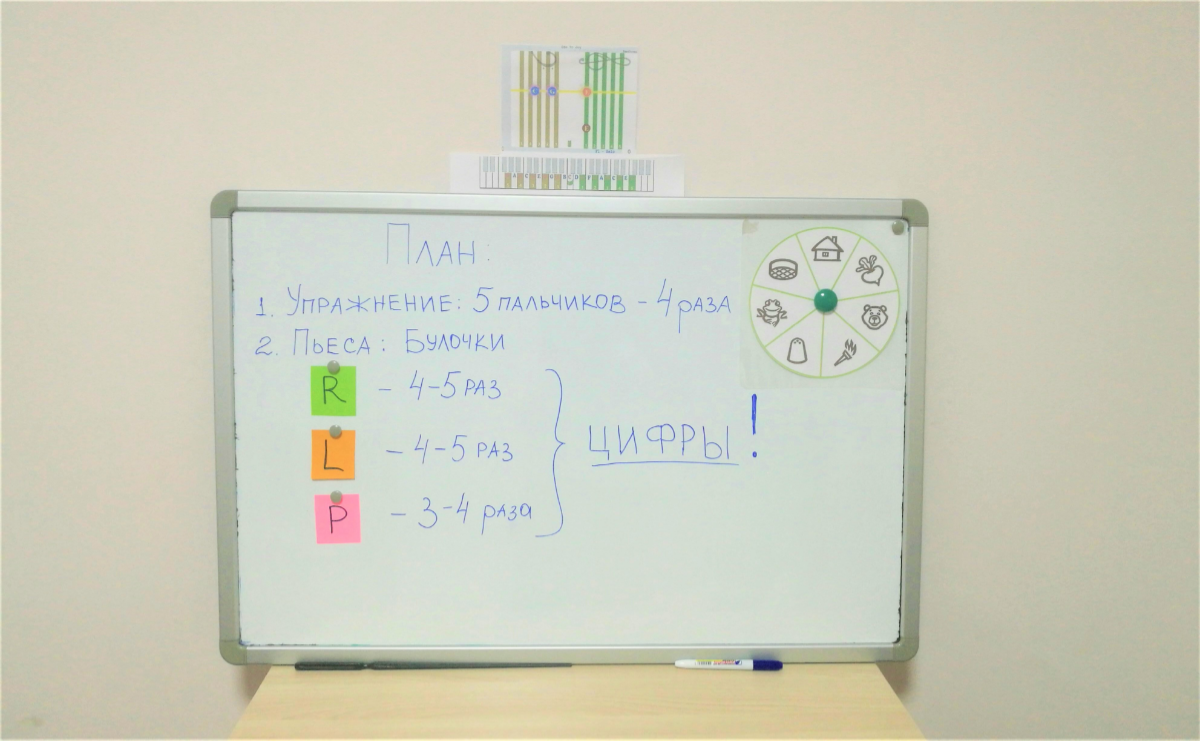 План:
1. Упражнение: 5 пальчиков - 4 раза
2. Пьеса: Булочки
R - 4-5 раз
L - 4-5 раз
P - 3-4 раза
ЦИФРЫ!